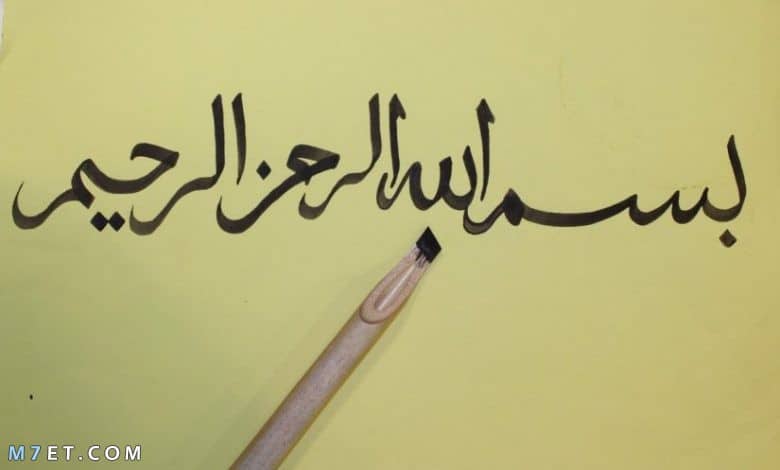 بسم الله الرحمن الرحيم
M7ET.COM